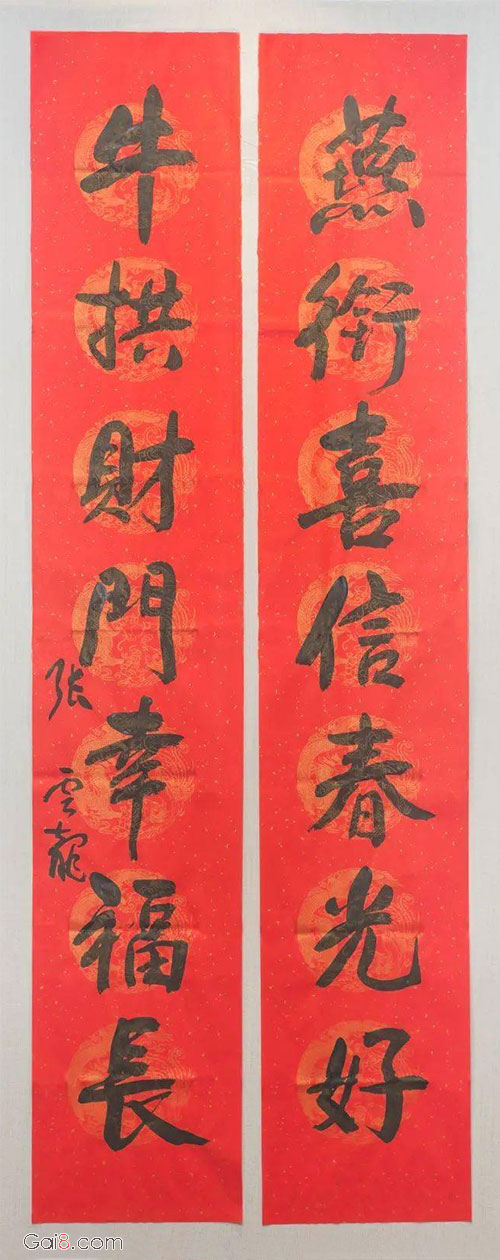 燕銜喜信春光好
牛拱財門幸福長
张云龍
Gai8.com